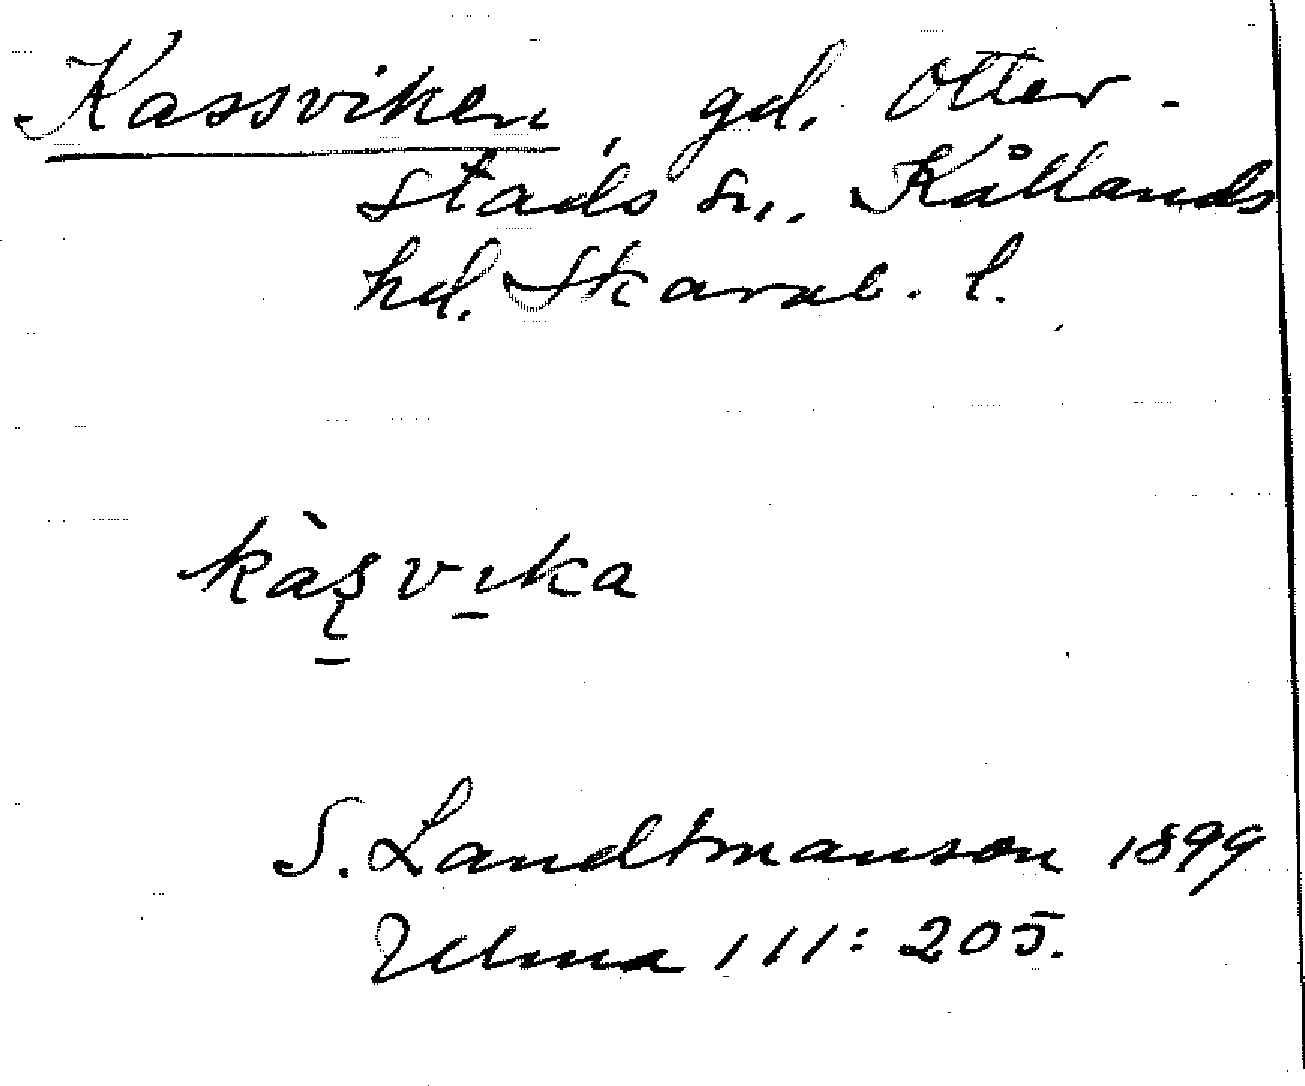 Kassviken, gd. Otter-
stads sn. Kållands
hd. Skarab. l.
kàs̨vika
S. Landtmanson 1899
Ulma 111:205.